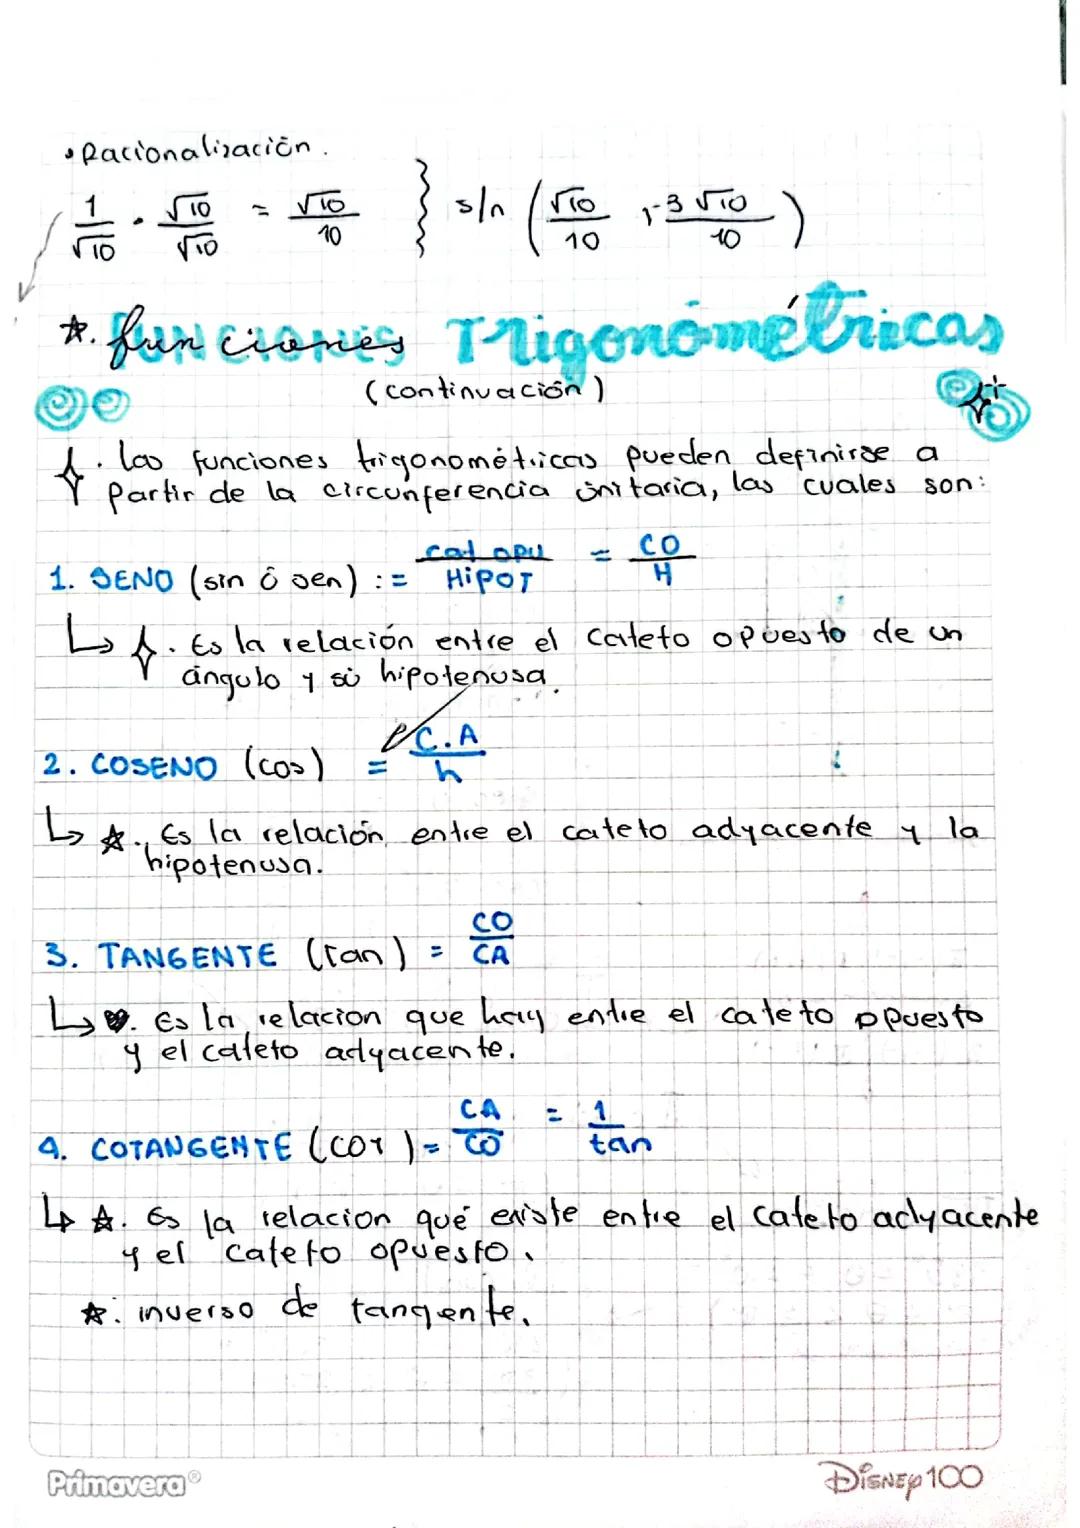 • Racionalización.
1/√10 · √10/√10 = √10/10 } s/n (√10/10 , -3√10/10)
☆. funciones Trigonométricas
(continuación)
. las funciones trigonométricas pueden definirse a
partir de la circunferencia unitaria, las cuales son:
1. SENO (sin ó sen) := cat opu/HIPOT = CO/H
↳ . Es la relación entre el cateto opuesto de un
ángulo y su hipotenusa.
2. COSENO (cos) = C.A/h
↳ ☆. Es la relación entre el cateto adyacente y la
hipotenusa.
3. TANGENTE (tan) = CO/CA
↳ ♥. Es la relacion que hay entre el cateto opuesto
y el cateto adyacente.
4. COTANGENTE (cot) = CA/CO = 1/tan
↳ ☆. Es la relacion qué existe entre el cateto adyacente
y el cateto opuesto.
☆. inverso de tangente.
Primavera® DISNEY100